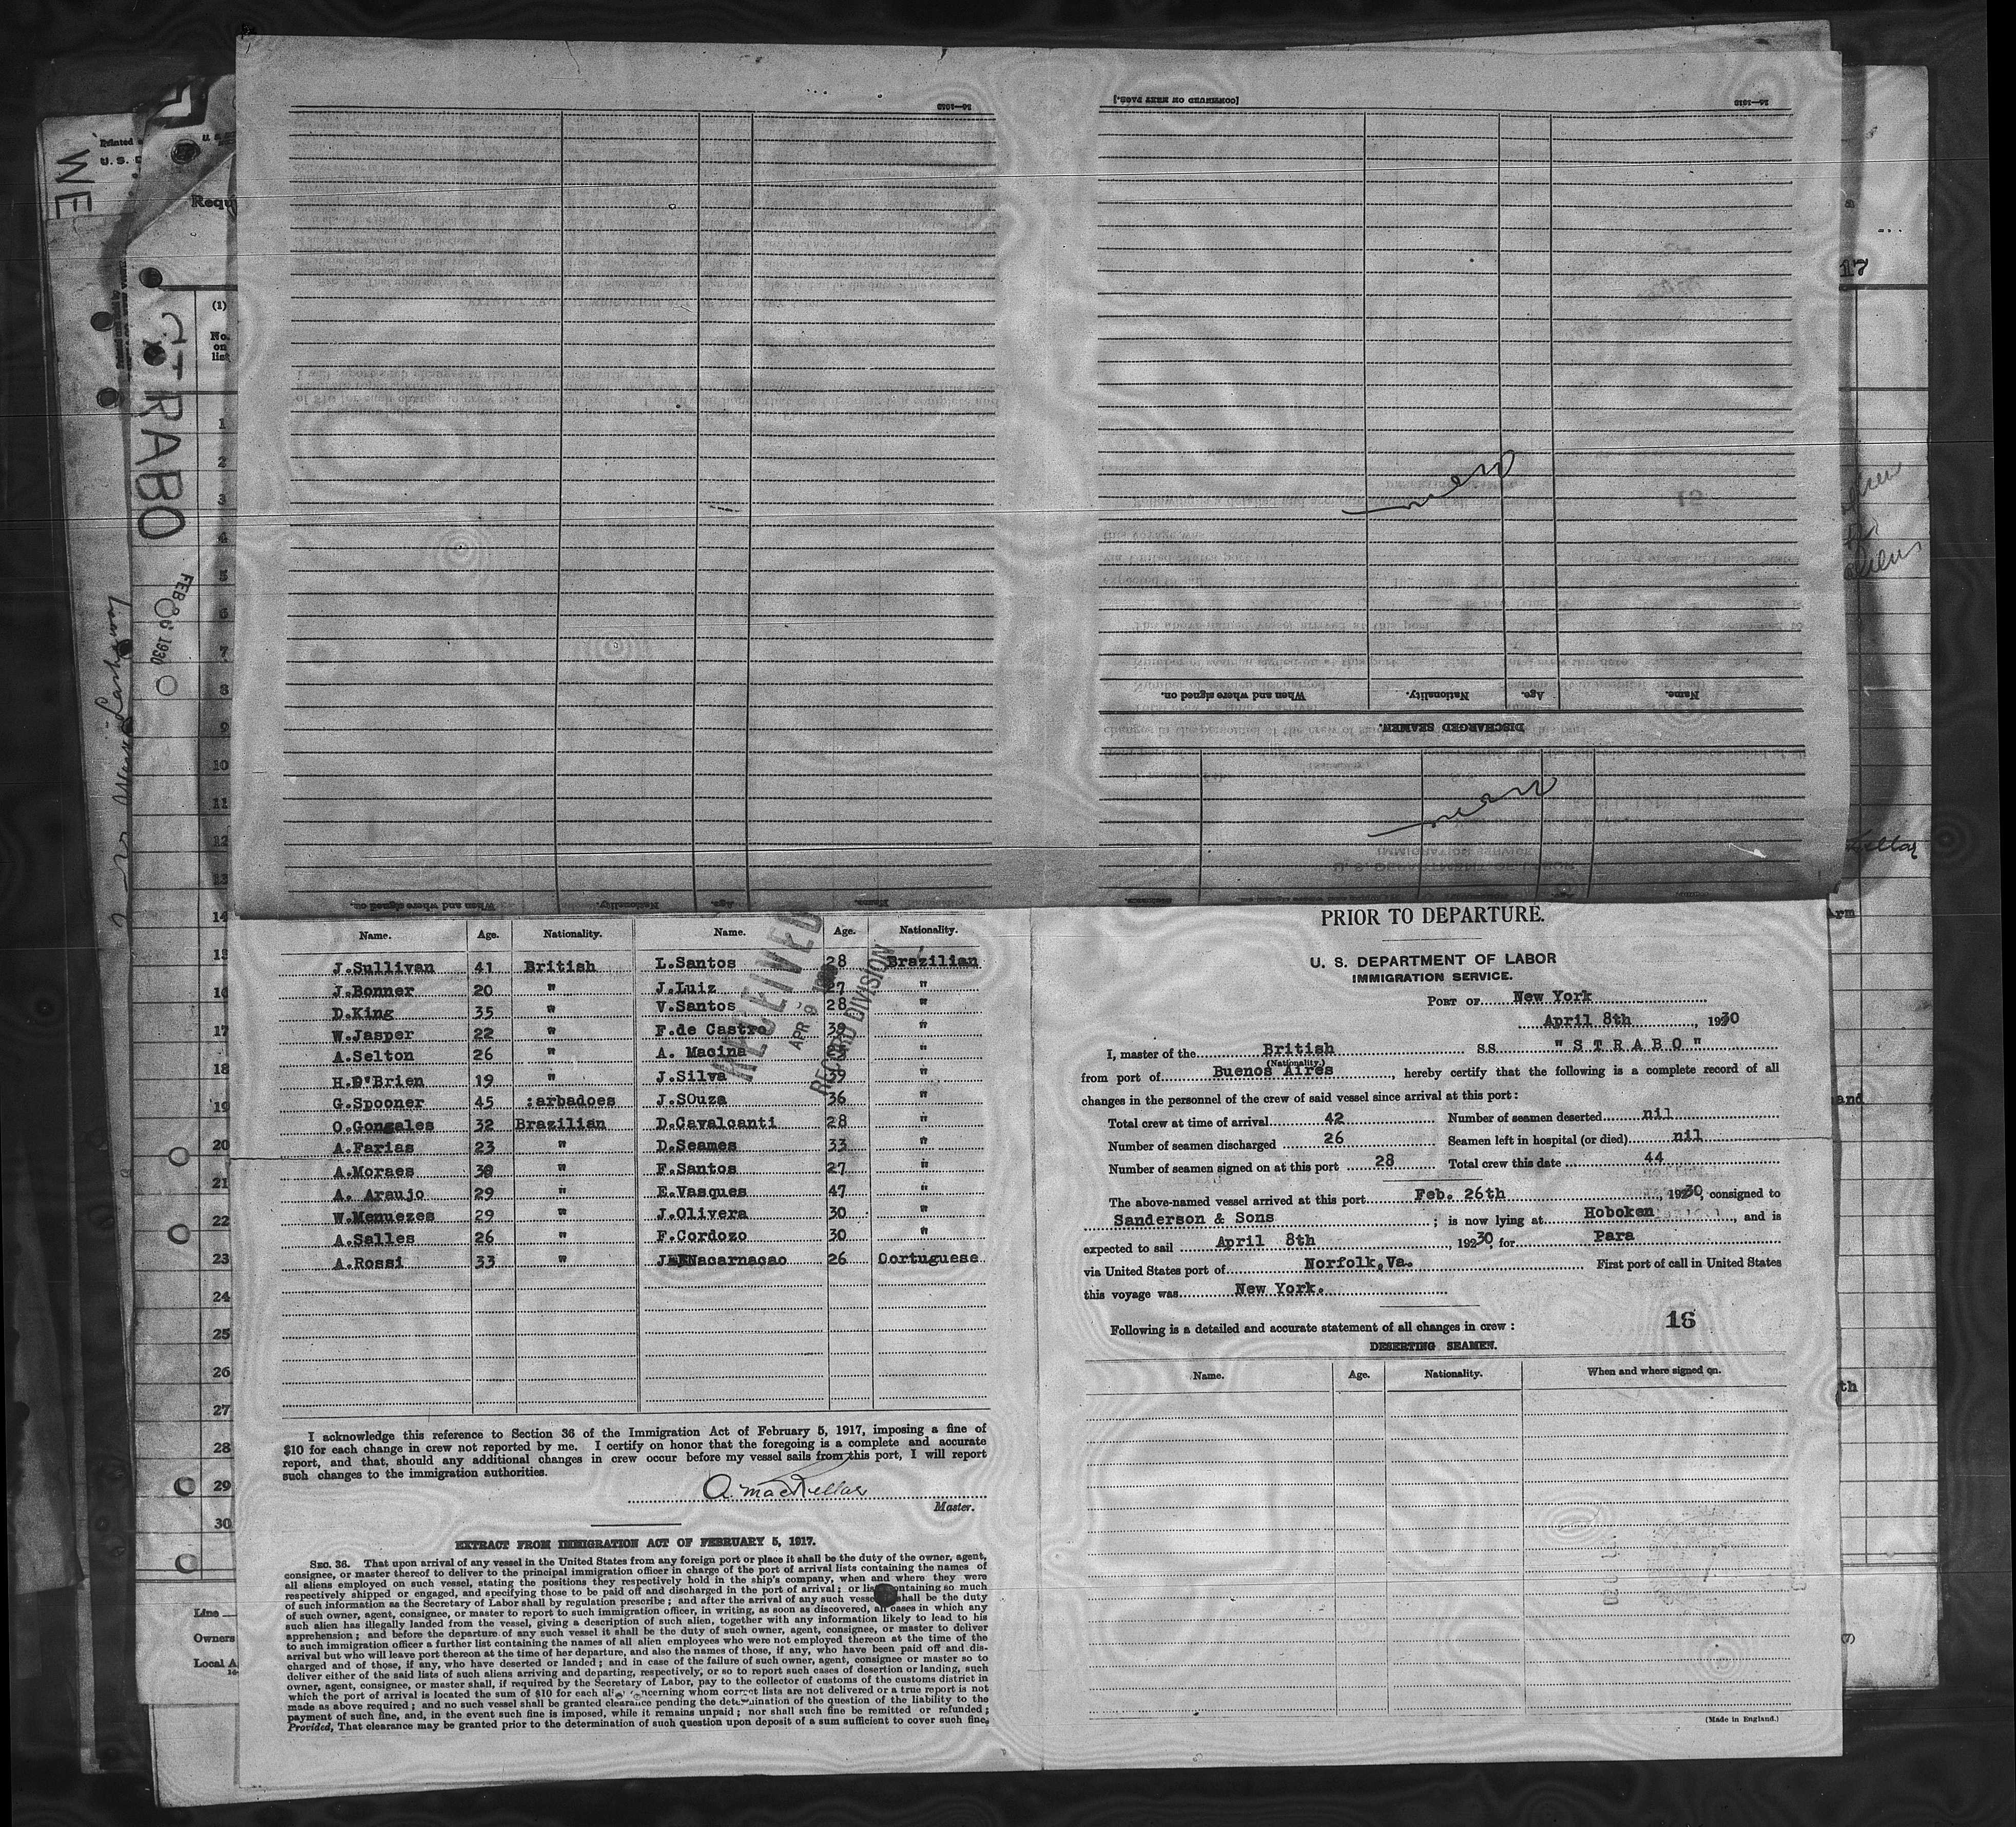 [CONTINUED ON NEXT PAGE.]
16—1019
16—1019
Name. Age. Nationality. When and where signed on.
DISCHARGED SEAMEN.
When and where signed on. Nationality. Age. Name.
WE
STRABO
FEB 26 1930
Printed
U. S. D
Requ
(1)
No.
on
list
17
1
2
3
4
5
6
7
8
9
10
11
12
13
14
15
16
17
18
19
20
21
22
23
24
25
26
27
28
29
30
Line
Owners
Local A
Name. Age. Nationality. Name. Age. Nationality.
J.Sullivan 41 British L.Santos 28 Brazilian
J.Bonner 20 " J.Luiz 27 "
D.King 35 " V.Santos 28 "
W.Jasper 22 " F.de Castro "
A.Selton 26 " A. Macina "
H.O'Brien 19 " J.Silva 39 "
G.Spooner 45 :arbadoes J.SOuza 36 "
O.Gongales 32 Brazilian D.Cavalcanti 28 "
A.Farias 23 " D.Seames 33 "
A.Moraes " F.Santos 27 "
A. Araujo 29 " E.Vasques 47 "
W.Menuezes 29 " J.Olivera 30 "
A.Salles 26 " F.Cordozo 30 "
A.Rossi 33 " Nacarnacao 26 Oortuguese
RECEIVED
APR 9
RECORD DIVISION
I acknowledge this reference to Section 36 of the Immigration Act of February 5, 1917, imposing a fine of
$10 for each change in crew not reported by me. I certify on honor that the foregoing is a complete and accurate
report, and that, should any additional changes in crew occur before my vessel sails from this port, I will report
such changes to the immigration authorities.
A. MacKellar
Master.
EXTRACT FROM IMMIGRATION ACT OF FEBRUARY 5, 1917.
SEC. 36. That upon arrival of any vessel in the United States from any foreign port or place it shall be the duty of the owner, agent,
consignee, or master thereof to deliver to the principal immigration officer in charge of the port of arrival lists containing the names of
all aliens employed on such vessel, stating the positions they respectively hold in the ship's company, when and where they were
respectively shipped or engaged, and specifying those to be paid off and discharged in the port of arrival; or lis ontaining so much
of such information as the Secretary of Labor shall by regulation prescribe; and after the arrival of any such vesse shall be the duty
of such owner, agent, consignee, or master to report to such immigration officer, in writing, as soon as discovered, all cases in which any
such alien has illegally landed from the vessel, giving a description of such alien, together with any information likely to lead to his
apprehension; and before the departure of any such vessel it shall be the duty of such owner, agent, consignee, or master to deliver
to such immigration officer a further list containing the names of all alien employees who were not employed thereon at the time of the
arrival but who will leave port thereon at the time of her departure, and also the names of those, if any, who have been paid off and dis-
charged and of those, if any, who have deserted or landed; and in case of the failure of such owner, agent, consignee or master so to
deliver either of the said lists of such aliens arriving and departing, respectively, or so to report such cases of desertion or landing, such
owner, agent, consignee, or master shall, if required by the Secretary of Labor, pay to the collector of customs of the customs district in
which the port of arrival is located the sum of $10 for each alien concerning whom correct lists are not delivered or a true report is not
made as above required; and no such vessel shall be granted clearance pending the determination of the question of the liability to the
payment of such fine, and, in the event such fine is imposed, while it remains unpaid; nor shall such fine be remitted or refunded;
Provided, That clearance may be granted prior to the determination of such question upon deposit of a sum sufficient to cover such fine.
PRIOR TO DEPARTURE.
U. S. DEPARTMENT OF LABOR
IMMIGRATION SERVICE.
PORT OF New York
April 8th, 1930
I, master of the British S.S. "STRABO"
(Nationality.)
from port of Buenos Aires, hereby certify that the following is a complete record of all
changes in the personnel of the crew of said vessel since arrival at this port:
Total crew at time of arrival 42 Number of seamen deserted nil
Number of seamen discharged 26 Seamen left in hospital (or died) nil
Number of seamen signed on at this port 28 Total crew this date 44
The above-named vessel arrived at this port Feb. 26th, 19230, consigned to
Sanderson & Sons; is now lying at Hoboken, and is
expected to sail April 8th, 19230, for Para
via United States port of Norfolk,Va. First port of call in United States
this voyage was New York.
16
Following is a detailed and accurate statement of all changes in crew:
DESERTING SEAMEN.
Name. Age. Nationality. When and where signed on.
(Made in England.)